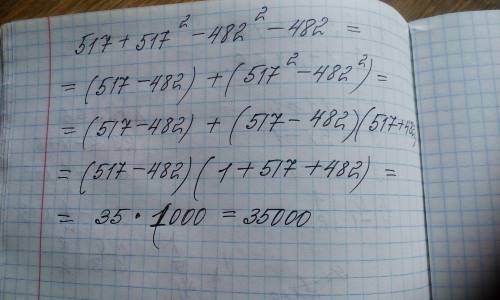 517 + 517² - 482² - 482 =
= (517 - 482) + (517² - 482²) =
= (517 - 482) + (517 - 482)(517+482)
= (517 - 482)(1 + 517 + 482) =
= 35 · 1000 = 35000